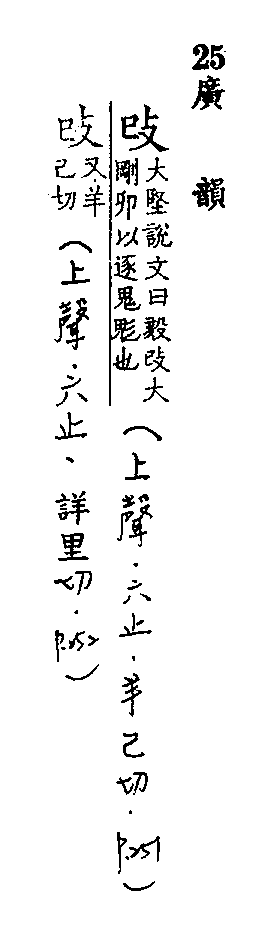 25廣韻
㱾大堅說文曰毅㱾大
剛卯以逐鬼鬽也
(上聲·六止·羊己切·P.251)
㱾又羊
己切
(上聲·六止、詳里切·P.252)